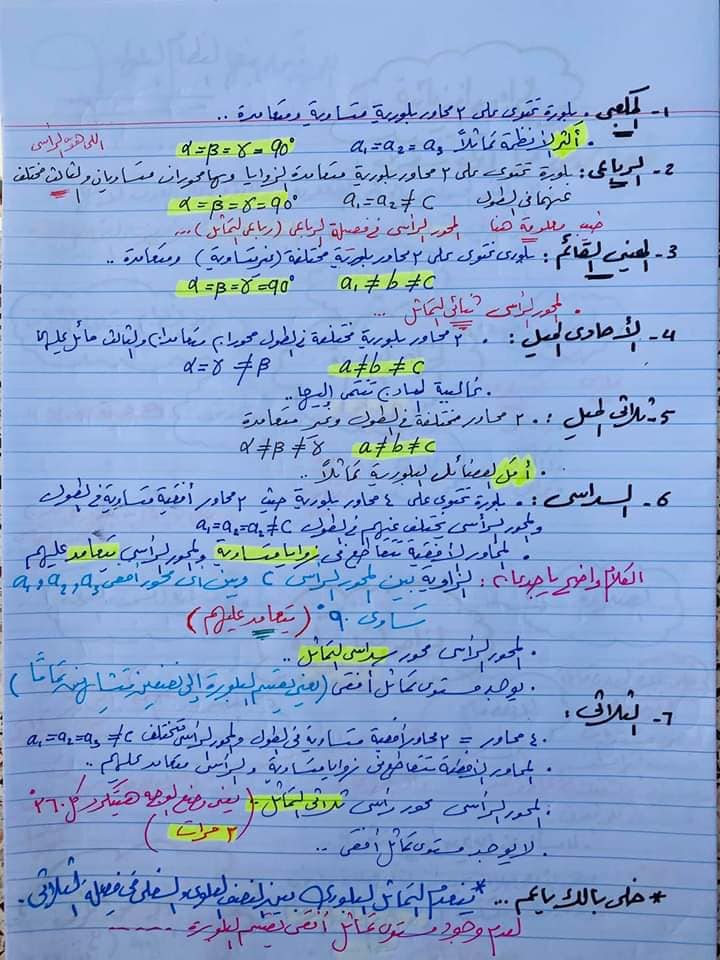 ١- المكعبى : بلورة تحتوى على ٣ محاور بلورية متساوية ومتعامدة ..
• أكثر الأنظمة تماثلاً a₁ = a₂ = a₃ α = β = γ = 90° اللى هو الرأسى
٢- الرباعى : بلورة تحتوى على ٣ محاور بلورية متعامدة الزوايا وبها محوران متساويان والثالث مختلف
عنهما فى الطول a₁ = a₂ ≠ c α = β = γ = 90°
المحور الرأسى فى فصيلة الرباعى (رباعى التماثل) ...
٣- المعينى القائم : بلورى تحتوى على ٣ محاور بلورية مختلفة (غير متساوية) ومتعامدة ..
a₁ ≠ b ≠ c α = β = γ = 90°
• المحور الرأسى ثنائى التماثل ...
٤- الأحادى الميل : • ٣ محاور بلورية مختلفة فى الطول محوران متعامدان والثالث مائل عليهما
a ≠ b ≠ c α = γ ≠ β
• غالبية المعادن تنتمى إليها ..
٥- ثلاثى الميل : • ٣ محاور مختلفة فى الطول وغير متعامدة
a ≠ b ≠ c α ≠ β ≠ γ
• أقل الفصائل البلورية تماثلاً ..
٦- السداسى : • بلورة تحتوى على ٤ محاور بلورية حيث ٣ محاور أفقية متساوية فى الطول
والمحور الرأسى يختلف عنهم فى الطول a₁ = a₂ = a₂ ≠ c
• المحاور الأفقية تتقاطع فى زوايا متساوية والمحور الرأسى يتعامد عليهم
الكلام واضح يا جدعان : الزاوية بين المحور الرأسى c وبين أى محور أفقى a₁, a₂, a₃
تساوى ٩٠° (يتعامد عليهم)
• المحور الرأسى محور سداسى التماثل ..
• يوجد مستوى تماثل أفقى (يعنى يقسم البلورة إلى نصفين متشابهين تمامًا)
٧- الثلاثى :
• ٤ محاور = ٣ محاور أفقية متساوية فى الطول والمحور الرأسى مختلف a₁ = a₂ = a₃ ≠ c
• المحاور الأفقية تتقاطع فى زوايا متساوية والرأسى متعامد عليهم ..
• المحور الرأسى محور رأسى ثلاثى التماثل .. (يعنى وضع الوجه هيتكرر كل ٣٦٠°
٣ مرات)
• لا يوجد مستوى تماثل أفقى ..
* خلى بالك يا عم ... * ينعدم التماثل البلورى بين النصف العلوى والسفلى فى فصيلة الثلاثى .
لعدم وجود مستوى تماثل أفقى يقسم البلورة ......